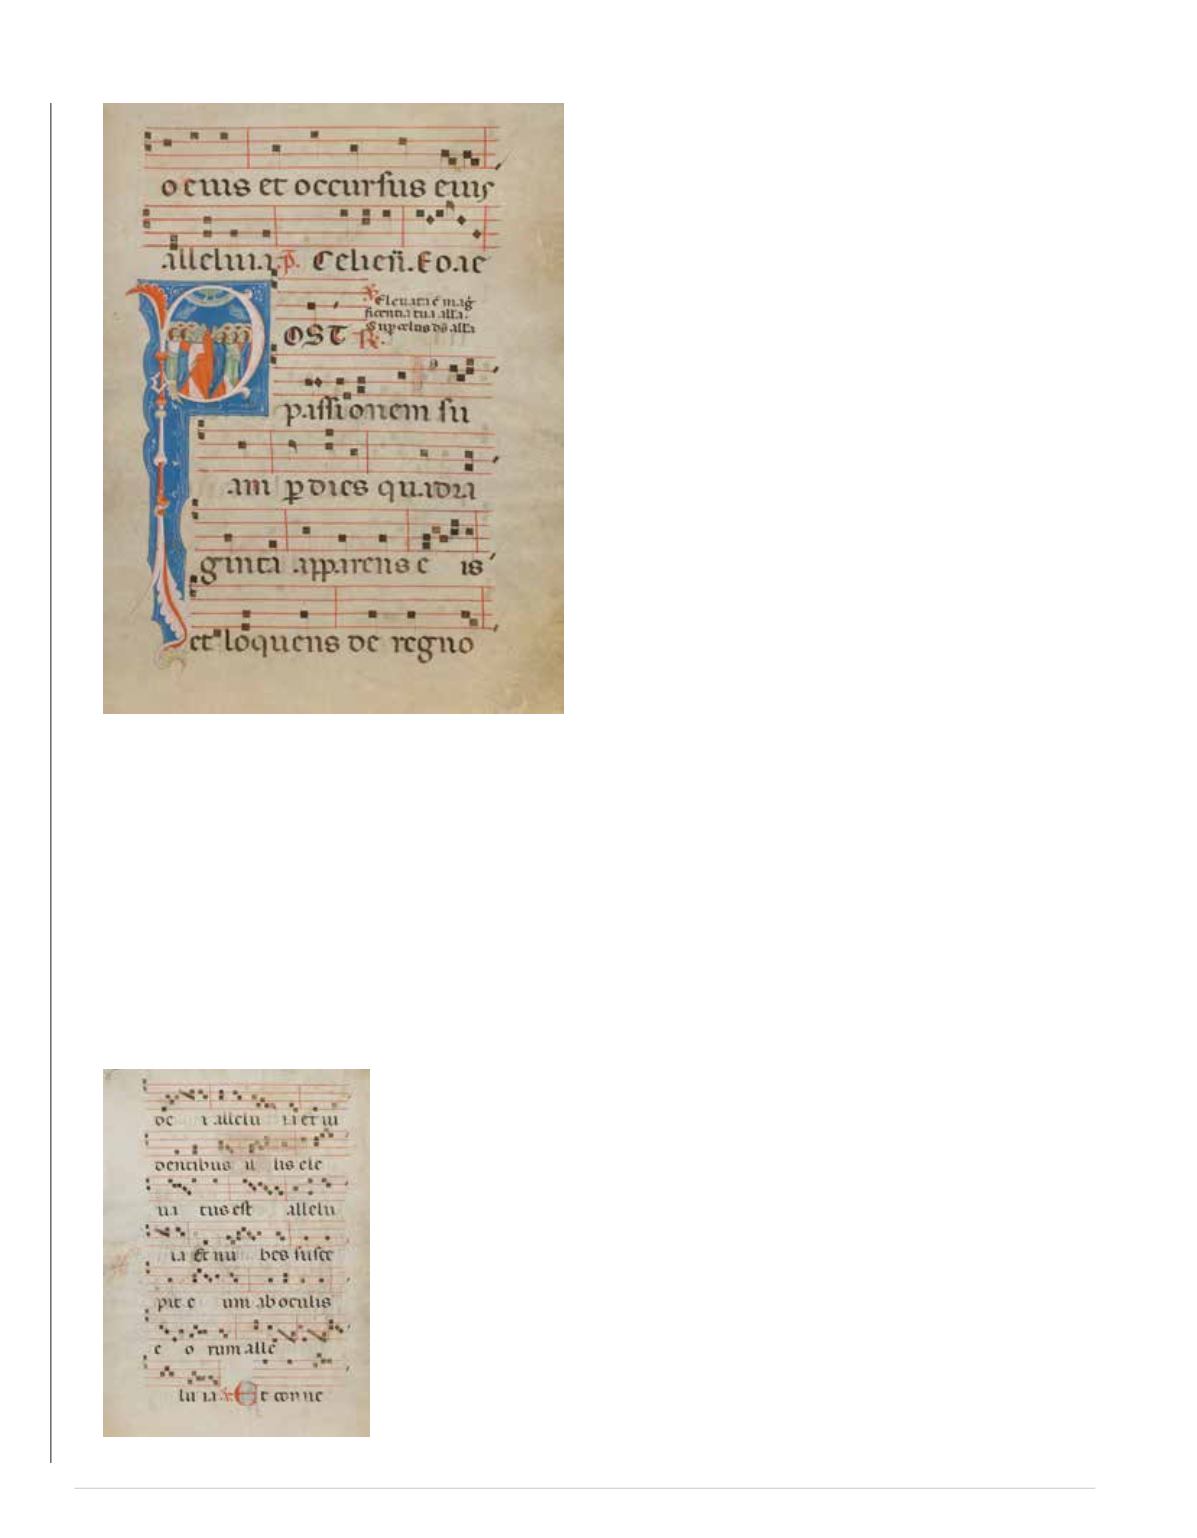 o eius et occursus eius
alleluia. p̄. Celi en̄. Eoae
Eleuata ē mag
ficentia tua alła.
Sup celos ds̄ alła
OST R.
passionem su
am p̱ dies quadra
ginta apparens e is
et loquens de regno
de i allelu ia et ui
dentibus il lis ele
ua tus est allelu
ia Et nu bes susce
pit e um ab oculis
e o rum alle
lu ia. Et conue